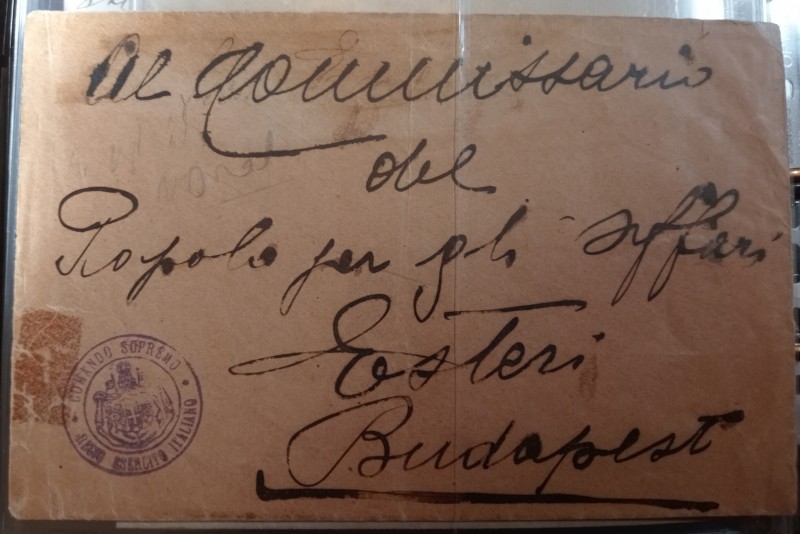 Al Commissario
del
Popolo per gli Affari
Esteri
Budapest
COMANDO SUPREMO
REGIO ESERCITO ITALIANO